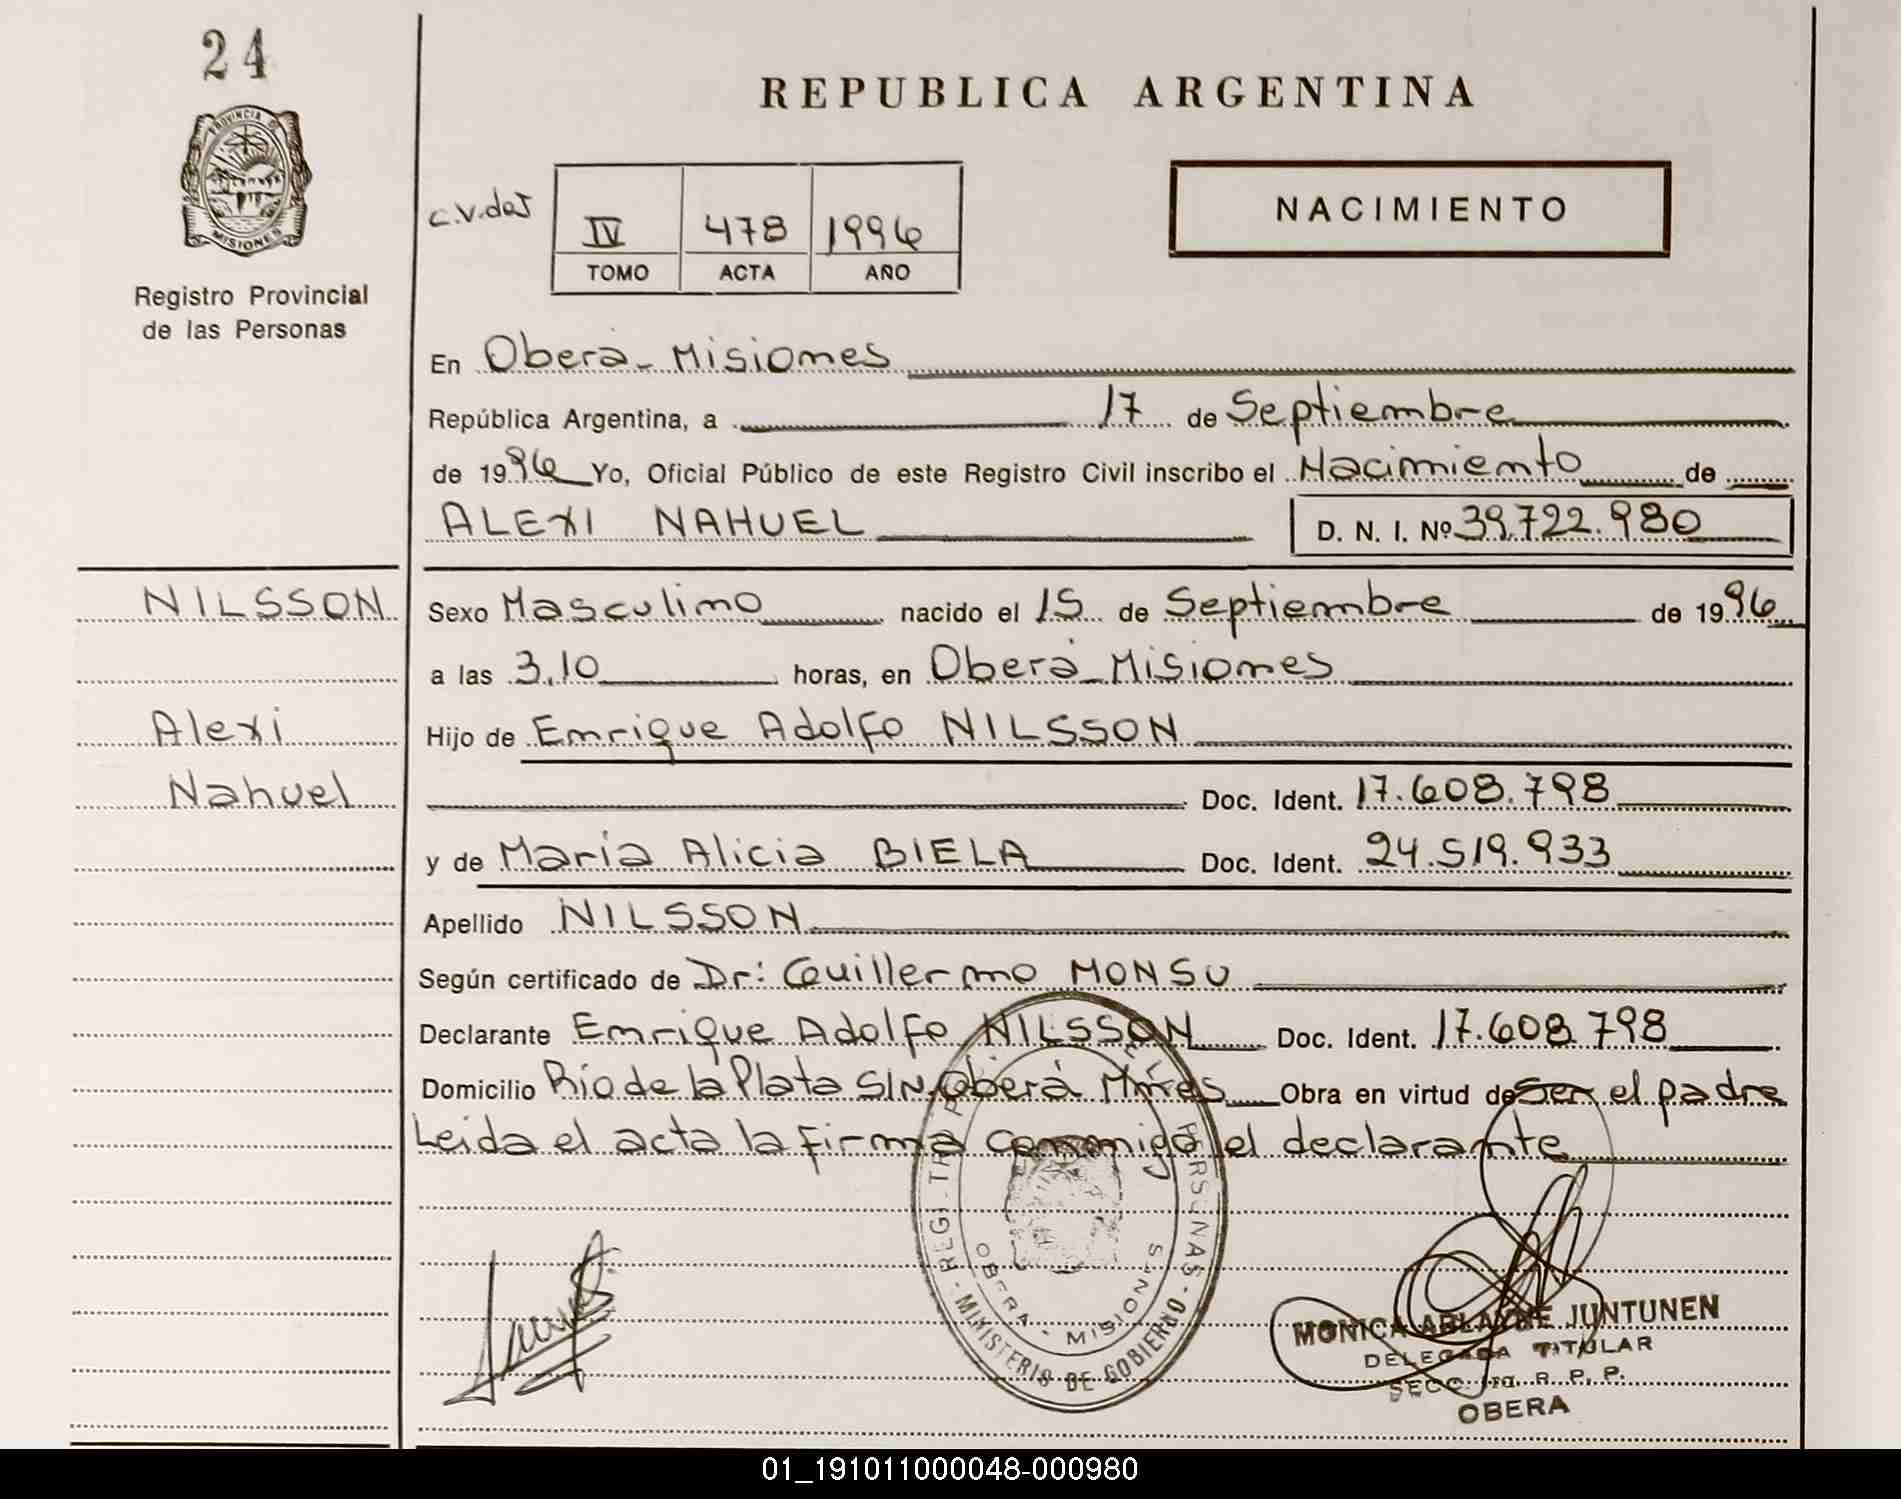 24
PROVINCIA DE
MISIONES
Registro Provincial
de las Personas
REPUBLICA ARGENTINA
NACIMIENTO
IV 478 1996
TOMO ACTA AÑO
En Oberá - Misiones
República Argentina, a 17 de Septiembre
de 1996 Yo, Oficial Público de este Registro Civil inscribo el Nacimiento de
ALEXI NAHUEL D. N. I. Nº 39.722.980
NILSSON
Alexi
Nahuel
Sexo Masculino nacido el 15 de Septiembre de 1996
a las 3.10 horas, en Oberá - Misiones
Hijo de Enrique Adolfo NILSSON
Doc. Ident. 17.608.798
y de María Alicia BIELA Doc. Ident. 24.519.933
Apellido NILSSON
Según certificado de Dr: Guillermo MONSU
Declarante Enrique Adolfo NILSSON Doc. Ident. 17.608.798
Domicilio Río de la Plata S/N, Oberá Mnes Obra en virtud de ser el padre
Leida el acta la firma conmigo el declarante
OBERA - MISIONES
MINISTERIO DE GOBIERNO
MONICA JUNTUNEN
DELEGADA TITULAR
SECC. R. P. P.
OBERA
01_191011000048-000980